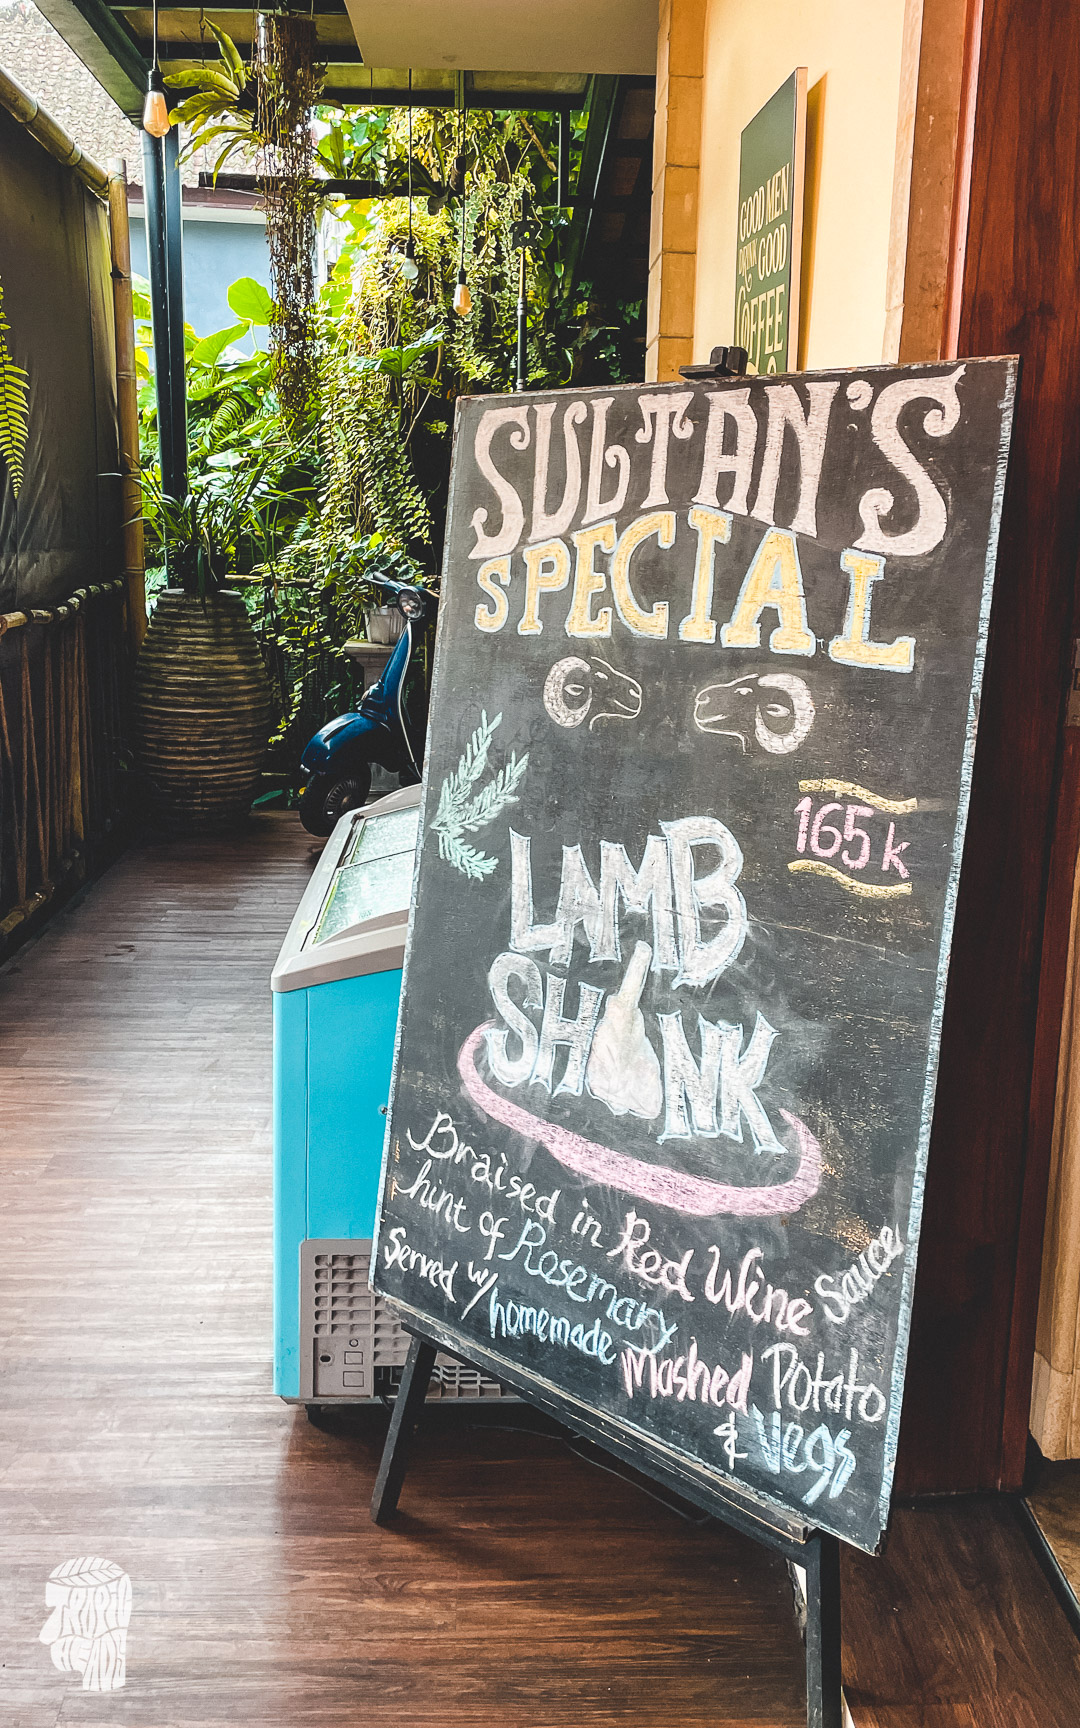 GOOD MEN
DRINK GOOD
COFFEE
SULTAN'S
SPECIAL
165k
LAMB
SHANK
Braised in Red Wine Sauce
hint of Rosemary
Served w/ homemade Mashed Potato
& Vegs
TROPIC
HEADS